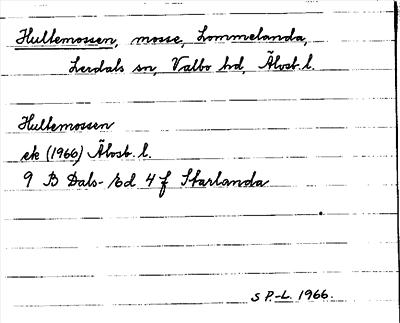 Hultemossen, mosse, Lommelanda,
Lerdals sn, Valbo hd, Älvsb. l.
Hultemossen
ek (1966) Älvsb. l.
9 B Dals-Ed 4 f Starlanda
S P.-L. 1966.